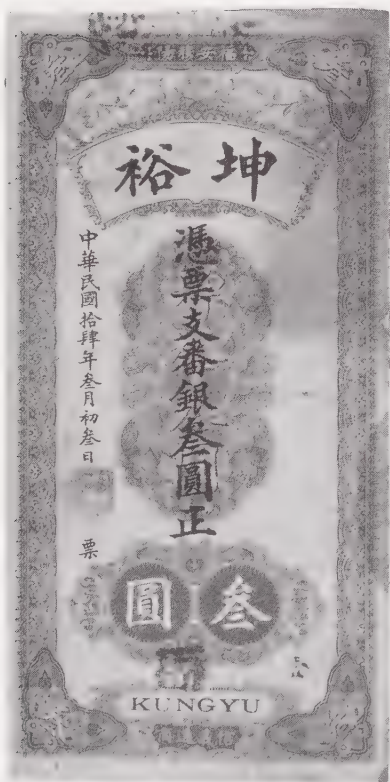 坤裕
憑票支番銀叁圓正
中華民國拾肆年叁月初叁日
票
叁圓
KUNGYU